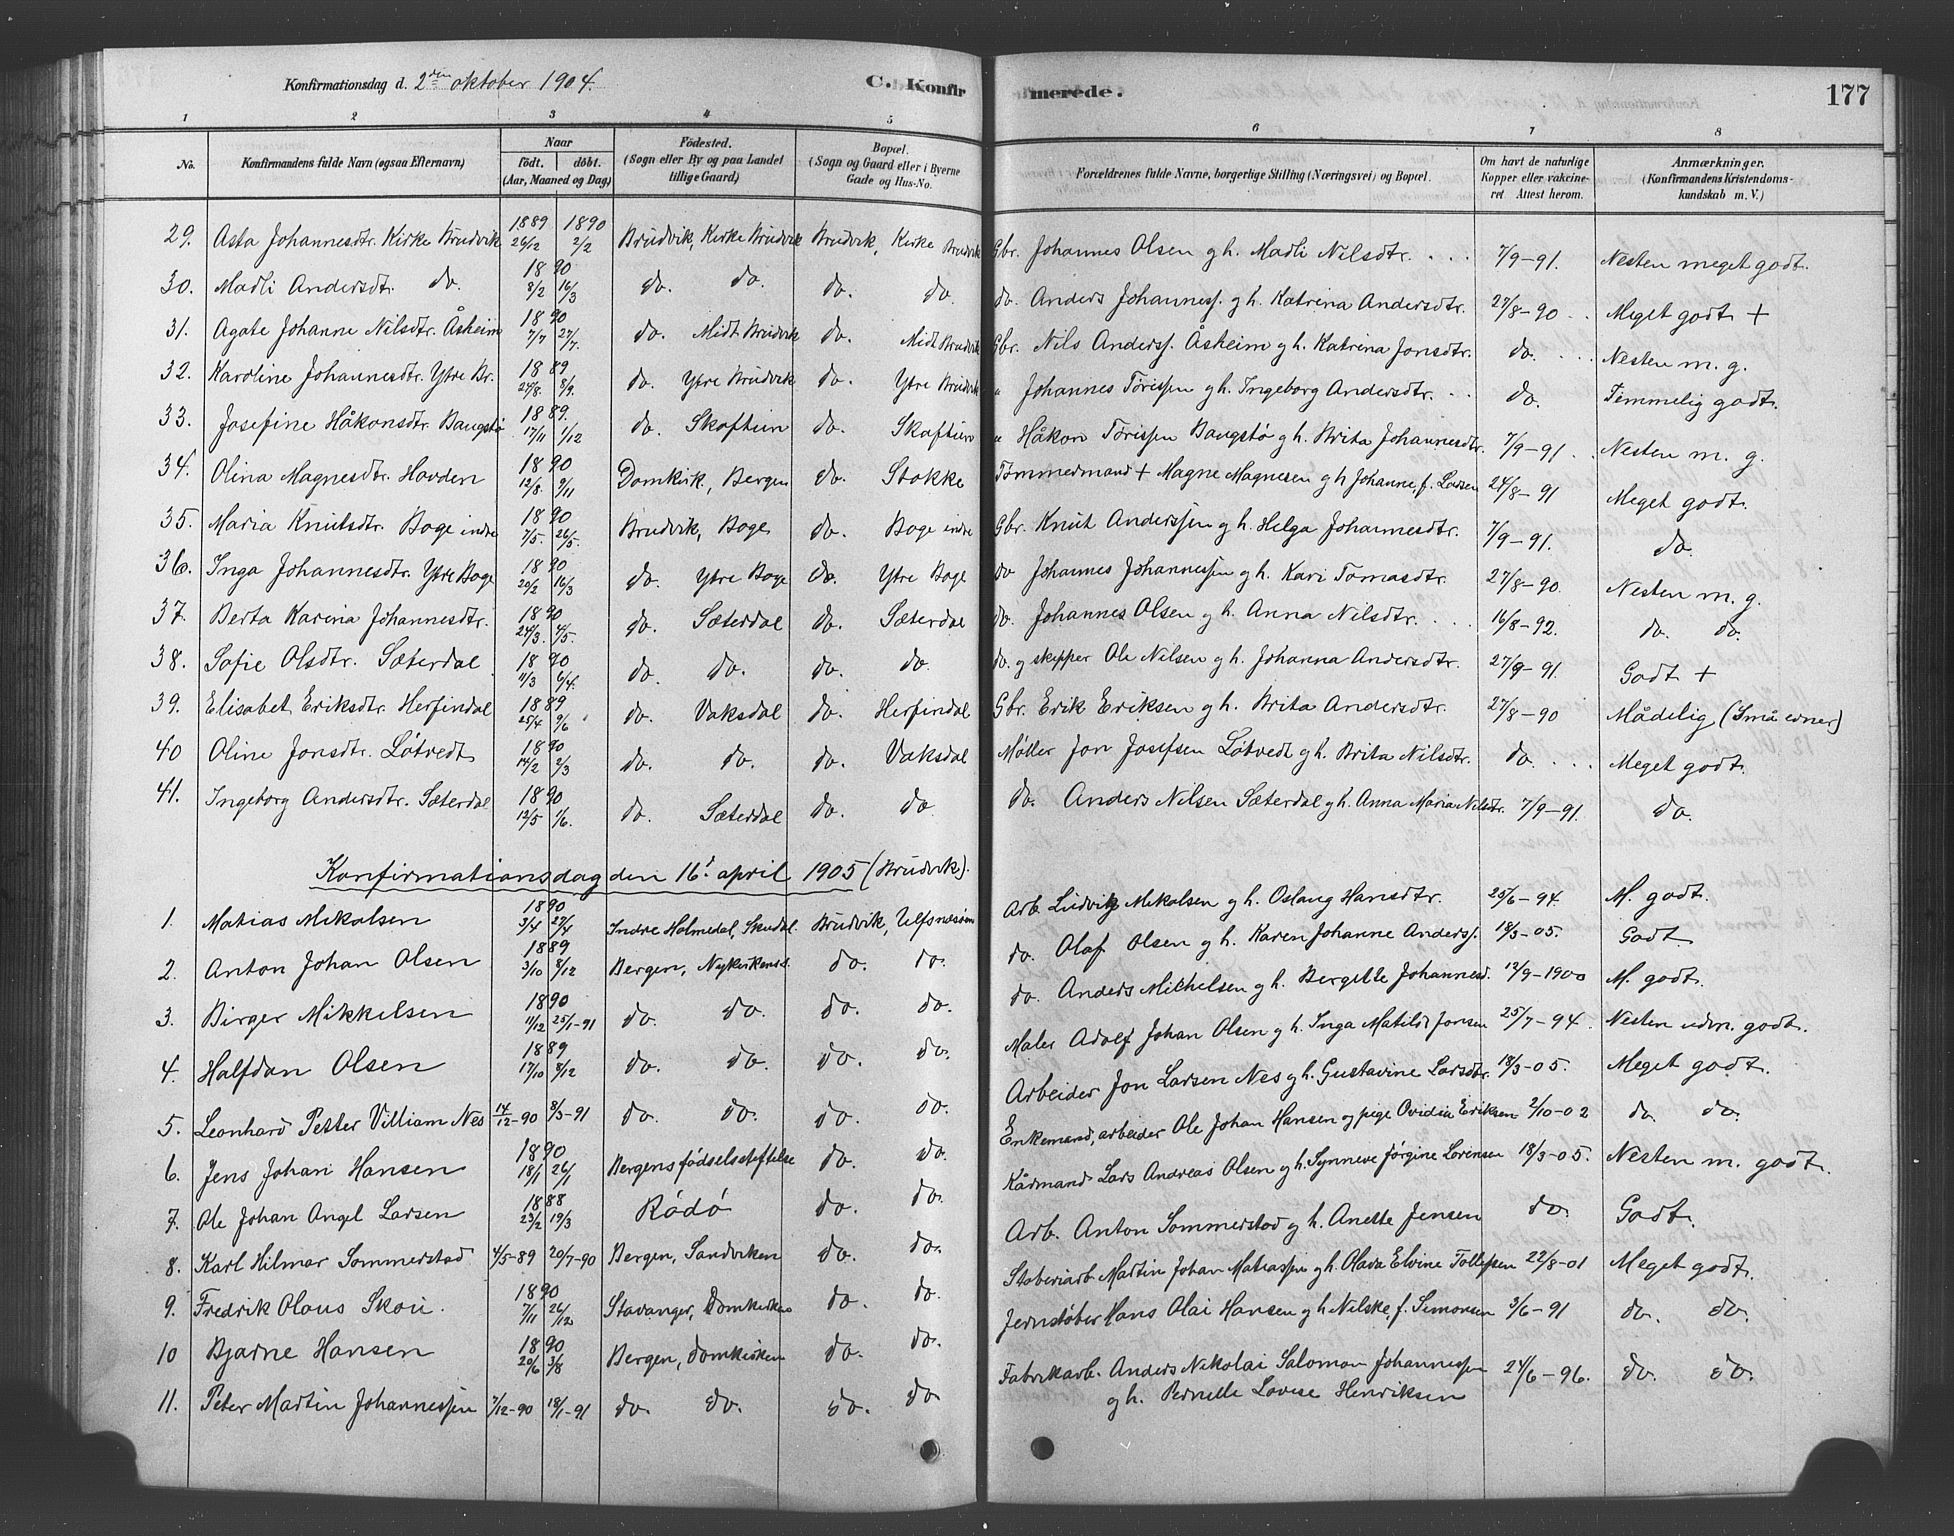 Konfirmationsdag d. 2den oktober 1904.
C. Konfirmerede.
177
1 2 3 4 5 6 7 8
No. Konfirmandens fulde Navn (ogsaa Efternavn) Naar født. døbt. (Aar, Maaned og Dag) Fødested. (Sogn eller By og paa Landet tillige Gaard) Bopæl. (Sogn og Gaard eller i Byerne Gade og Hus-No. Forældrenes fulde Navne, borgerlige Stilling (Næringsvei) og Bopæl. Om havt de naturlige Kopper eller vakcineret Attest herom. Anmærkninger. (Konfirmandens Kristendomskundskab m. V.)
29. Asta Johannesdtr. Kirke Brudvik 1889 26/12 1890 2/2 Brudvik, Kirke Brudvik Brudvik, Kirke Brudvik Gbr. Johannes Olsen g h. Madli Nilsdtr. . . . 7/9-91. Nesten meget godt.
30. Madli Andersdtr. do. 1890 8/2 16/3 do. do. do. do. do. Anders Johanness. g h. Katrina Andersdtr. 27/8-90 . . Meget godt +
31. Agate Johanne Nilsdtr. Åsheim 1890 7/7 27/7. do. Midt Brudvik do. Midt Brudvik Gbr. Nils Anderss. Åsheim g h. Katrina Jonsdtr. do. . . . Nesten m. g.
32. Karoline Johannesdtr. Ytre Br. 1889 24/8. 8/9. do. Ytre Brudvik do. Ytre Brudvik " Johannes Torissen g h. Ingeborg Andersdtr. . . do. Temmelig godt.
33. Josefine Håkonsdtr. Baugstø 1889. 17/11 1/12 do. Skoftun do. Skoftun " Håkon Torissen Baugstø g h. Brita Johannesdtr. 7/9-91 . Nesten m. g.
34. Olina Magnesdtr. Hovden 1890 12/8. 9/11 Domkirk., Bergen do. Stokke Tømmermand + Magne Magnesen g h Johanne, f. Larsen 24/8-91 Meget godt.
35. Maria Knutsdtr. Boge indre 1890 7/5. 26/5. Brudvik, Boge do. Boge indre Gbr. Knut Anderssen g h. Helga Johannesdtr. 7/9-91. do.
36. Inga Johannesdtr. Ytre Boge 1890 20/2 16/3 do. Ytre Boge do. Ytre Boge do Johannes Johannessen g h. Kari Tomasdtr. 27/8-90. Nesten m. g.
37. Berta Karina Johannesdtr. 1890 24/3. 4/5. do. Sæterdal do. Sæterdal do. Johannes Olsen g h. Anna Nilsdtr. . . . 16/8-92. do. do.
38. Sofie Olsdtr. Sæterdal 1890 11/3 6/4. do. do. do. do. do. g skipper Ole Nilsen g h. Johanna Andersdtr. 27/9-91. Godt +
39. Elisabet Eriksdtr. Herfindal 1889 25/4 9/6 do. Vaksdal do. Herfindal Gbr. Erik Eriksen g h. Brita Andersdtr. 27/8-90 Mådelig (Små evner)
40 Oline Jonsdtr. Løtvedt 1890 14/2 2/3 do. do. do. Vaksdal Møller Jon Josefsen Løtvedt g h. Brita Nilsdtr. do. . . . Meget godt.
41. Ingeborg Andersdtr. Sæterdal 1890 12/5 1/6. do. Sæterdal do. do do. Anders Nilsen Sæterdal g h. Anna Maria Nilsdtr. 7/9-91. do.
Konfirmationsdag den 16. april 1905 (Brudvik).
1. Matias Mikalsen 1890 3/4 27/4 Indre Holmedal, Skudal. Brudvik, Ulfsnæsøen Arb. Ludvik Mikalsen g h. Oslaug Hansdtr. 25/6-94. M. godt.
2. Anton Johan Olsen 1889 3/10 8/12 Bergen, Nykirkens s. do. do. do. Olaf Olsen g h. Karen Johanne Anderss. 18/3-05. Godt
3. Birger Mikkelsen 1890 11/12 25/1-91 do. do. do. do. do. Anders Michelsen g h. Bergitte Johannesd. 12/9-1900 M. godt.
4. Halfdan Olsen 1889 17/10 8/12 do. do. do. do. Maler Adolf Johan Olsen g h. Inga Matilde Jonsen 25/7-94. Nesten udm. godt.
5. Leonhard Petter Villiam Nes 14/12-90 8/3-91 do. do. do. do. Arbeider Jon Larsen Nes g h. Gustavine Larsdtr. 18/3-05. Meget godt.
6. Jens Johan Hansen 1890 18/1 26/1 Bergens fødselsstiftelse do. do. Enkemand, arbeider Ole Johan Hansen og pige Ovidia Eriksen 2/10-02 do. do.
7. Ole Johan Angel Larsen 1888 23/2 19/3 Rødø do. do. Kårmand Lars Andreas Olsen g h. Synneve Jørgine Lorensen 18/3-05. Nesten m. godt.
8. Karl Hilmar Sommerstad 4/5-89 20/7-90 Bergen, Sandviken do. do. Arb. Anton Sommerstad g h. Anette Jensen do. Godt.
9. Fredrik Olaus Skou. 1890 7/11 26/12 Stavanger, Domkirken do. do. Støberiarb. Martin Johan Matiassen g h. Olava Elvine Tollefsen 22/8-01 Meget godt.
10 Bjarne Hansen 1890 20/6 3/8 Bergen, domkirken do. do. Jernstøber Hans Olai Hansen g h. Nilske, f. Simonsen 3/6-91 do. do.
11. Peter Martin Johannessen 7/12-90 18/1-91 do. do. do. do Fabrikarb. Anders Nikolai Salomon Johannessen 24/6-96. do. do.
g h. Pernille Lovise Henriksen